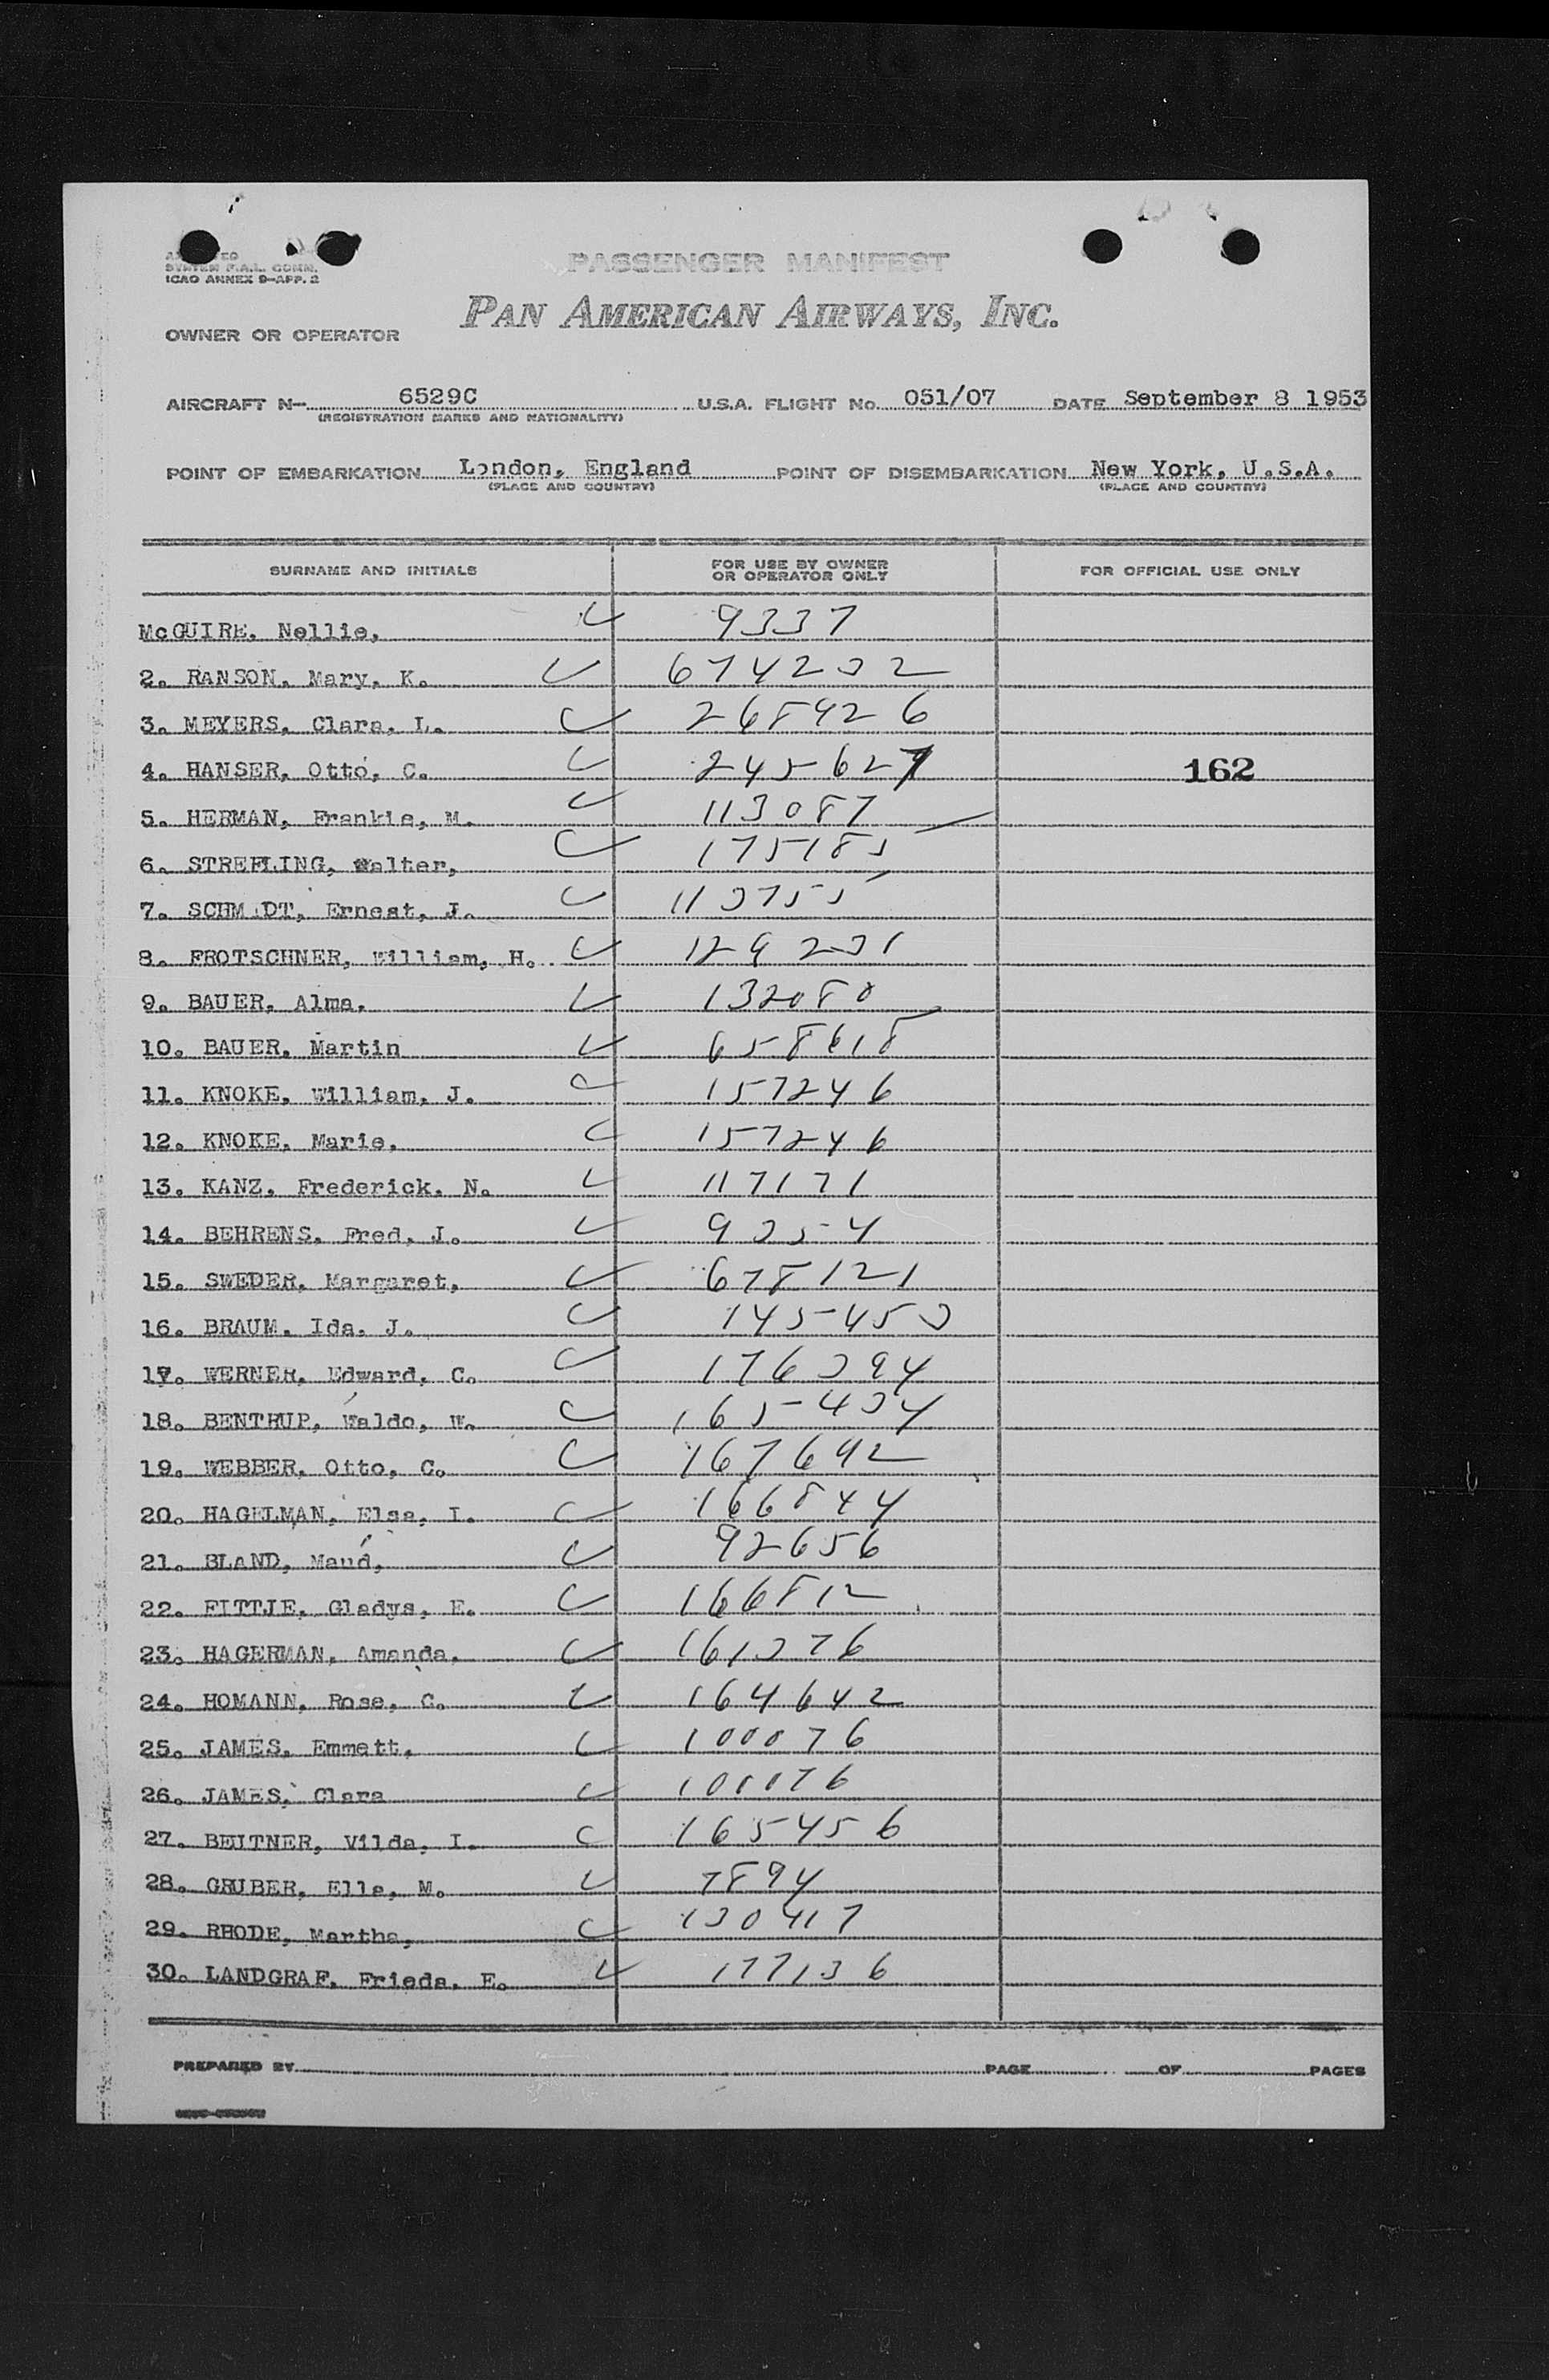 SYSTEM F.A.L. COMM.
ICAO ANNEX 9-APP. 2
PASSENGER MANIFEST
PAN AMERICAN AIRWAYS, INC.
OWNER OR OPERATOR
AIRCRAFT N- 6529C U.S.A. FLIGHT No. 051/07 DATE September 8 1953
(REGISTRATION MARKS AND NATIONALITY)
POINT OF EMBARKATION London, England POINT OF DISEMBARKATION New York, U.S.A.
(PLACE AND COUNTRY) (PLACE AND COUNTRY)
SURNAME AND INITIALS FOR USE BY OWNER OR OPERATOR ONLY FOR OFFICIAL USE ONLY
McGUIRE, Nellie, 9337
2. RANSON, Mary, K. 674232
3. MEYERS, Clara, L. 268926
4. HANSER, Otto, C. 245627 162
5. HERMAN, Frankie, M. 113087
6. STREFLING, Walter, 175185
7. SCHMIDT, Ernest, J. 113755
8. FROTSCHNER, William, H. 129231
9. BAUER, Alma, 132080
10. BAUER, Martin 658618
11. KNOKE, William, J. 157246
12. KNOKE, Marie, 157246
13. KANZ, Frederick, N. 117171
14. BEHRENS, Fred, J. 9354
15. SWEDER, Margaret, 678121
16. BRAUM, Ida, J. 145453
17. WERNER, Edward, C. 176394
18. BENTRUP, Waldo, W. 165434
19. WEBBER, Otto, C. 167692
20. HAGELMAN, Elsa, I. 166844
21. BLAND, Maud, 92656
22. FITTJE, Gladys, E. 166812
23. HAGERMAN, Amanda, 161376
24. HOMANN, Rose, C. 164642
25. JAMES, Emmett, 100076
26. JAMES, Clara 100076
27. BEUTNER, Vilda, I. 165456
28. GRUBER, Ella, M. 7894
29. RHODE, Martha, 130417
30. LANDGRAF, Frieda, E. 177136
PREPARED BY PAGE OF PAGES